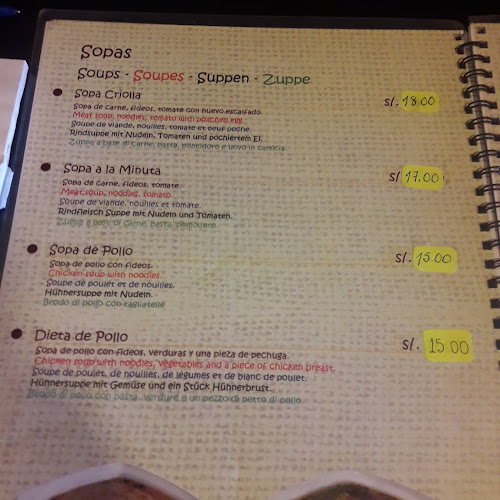 Sopas
Soups - Soupes - Suppen - Zuppe
Sopa Criolla S/. 18.00
Sopa de carne, fideos, tomate con huevo escalfado.
Meat soup, noodles, tomato with poached egg.
Soupe de viande, nouilles, tomate et oeuf poché.
Rindsuppe mit Nudeln, Tomaten und pochiertem Ei.
Zuppa a base di carne, pasta, pomodoro e uovo in camicia
Sopa a la Minuta S/. 17.00
Sopa de carne, fideos, tomate.
Meat soup, noodles, tomato.
Soupe de viande, nouilles et tomate.
Rindfleisch Suppe mit Nudeln und Tomaten.
Zuppa a base di carne, pasta, pomodoro.
Sopa de Pollo S/. 15.00
Sopa de pollo con fideos.
Chicken soup with noodles.
Soupe de poulet et de nouilles.
Hühnersuppe mit Nudeln.
Brodo di pollo con tagliatelle
Dieta de Pollo S/. 15.00
Sopa de pollo con fideos, verduras y una pieza de pechuga.
Chicken soup with noodles, vegetables and a piece of chicken breast.
Soupe de poulet, de nouilles, de légumes et de blanc de poulet.
Hühnersuppe mit Gemüse und ein Stück Hühnerbrust.
Brodo di pollo con pasta, verdure e un pezzo di petto di pollo